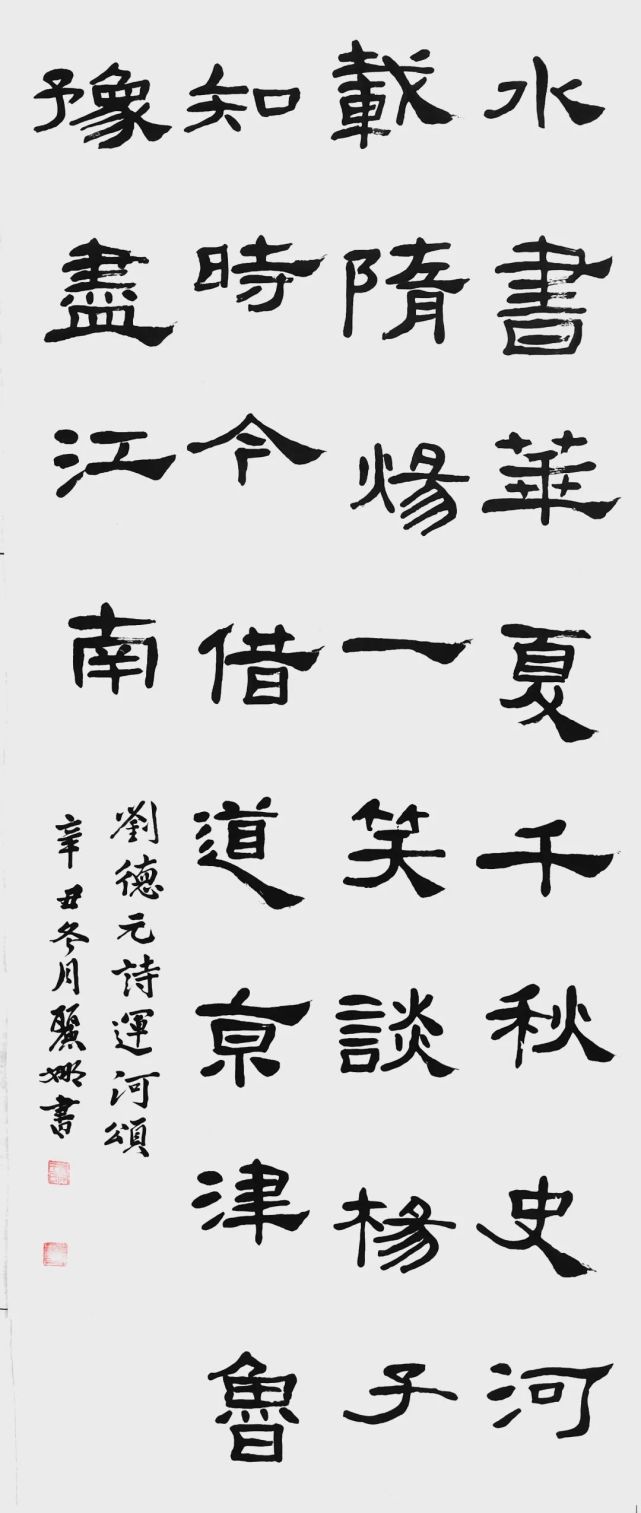 水書華夏千秋史河
載隋煬一笑談楊子
知時今借道京津魯
豫盡江南
劉德元詩運河頌
辛丑冬月麗娜書